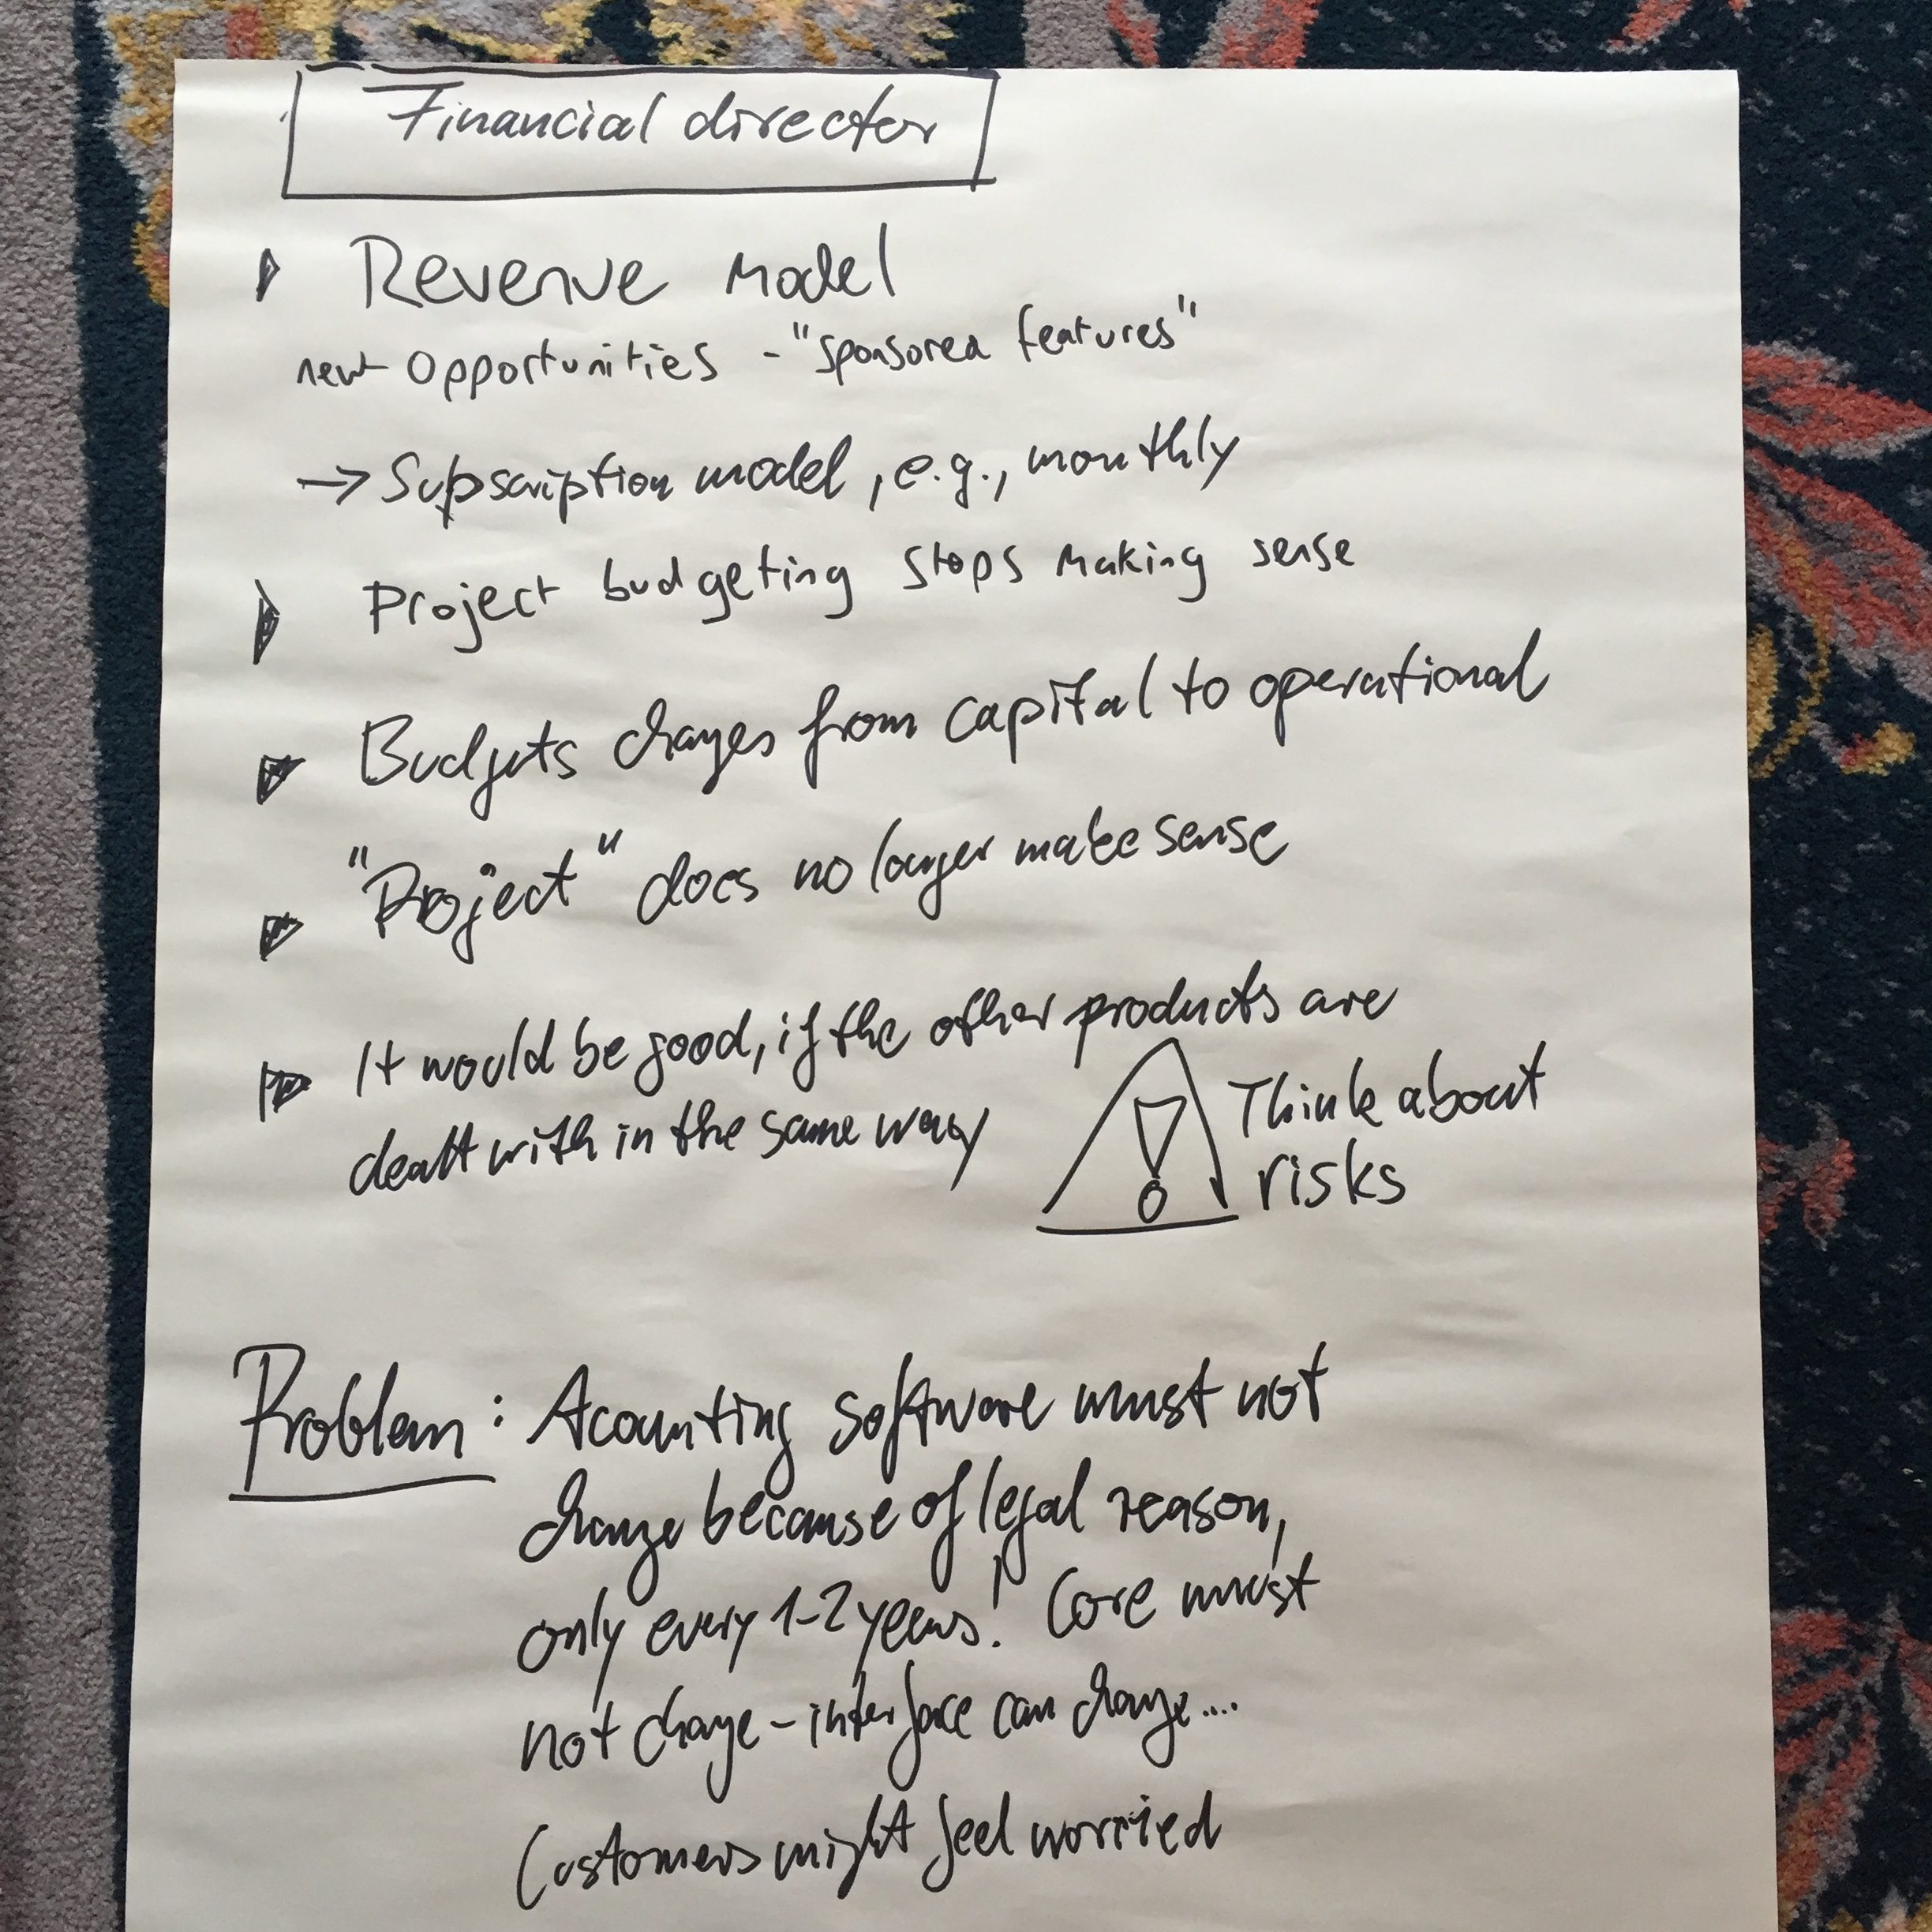 Financial director
Revenue Model
new Opportunities - "Sponsored features"
→ Subscription model, e.g., monthly
Project budgeting stops making sense
Budgets changes from capital to operational
"Project" does no longer make sense
It would be good, if the other products are
dealt with in the same way
Think about
risks
Problem: Acounting software must not
change because of legal reason,
only every 1-2 years! Core must
not change - interface can change....
Customers might feel worried